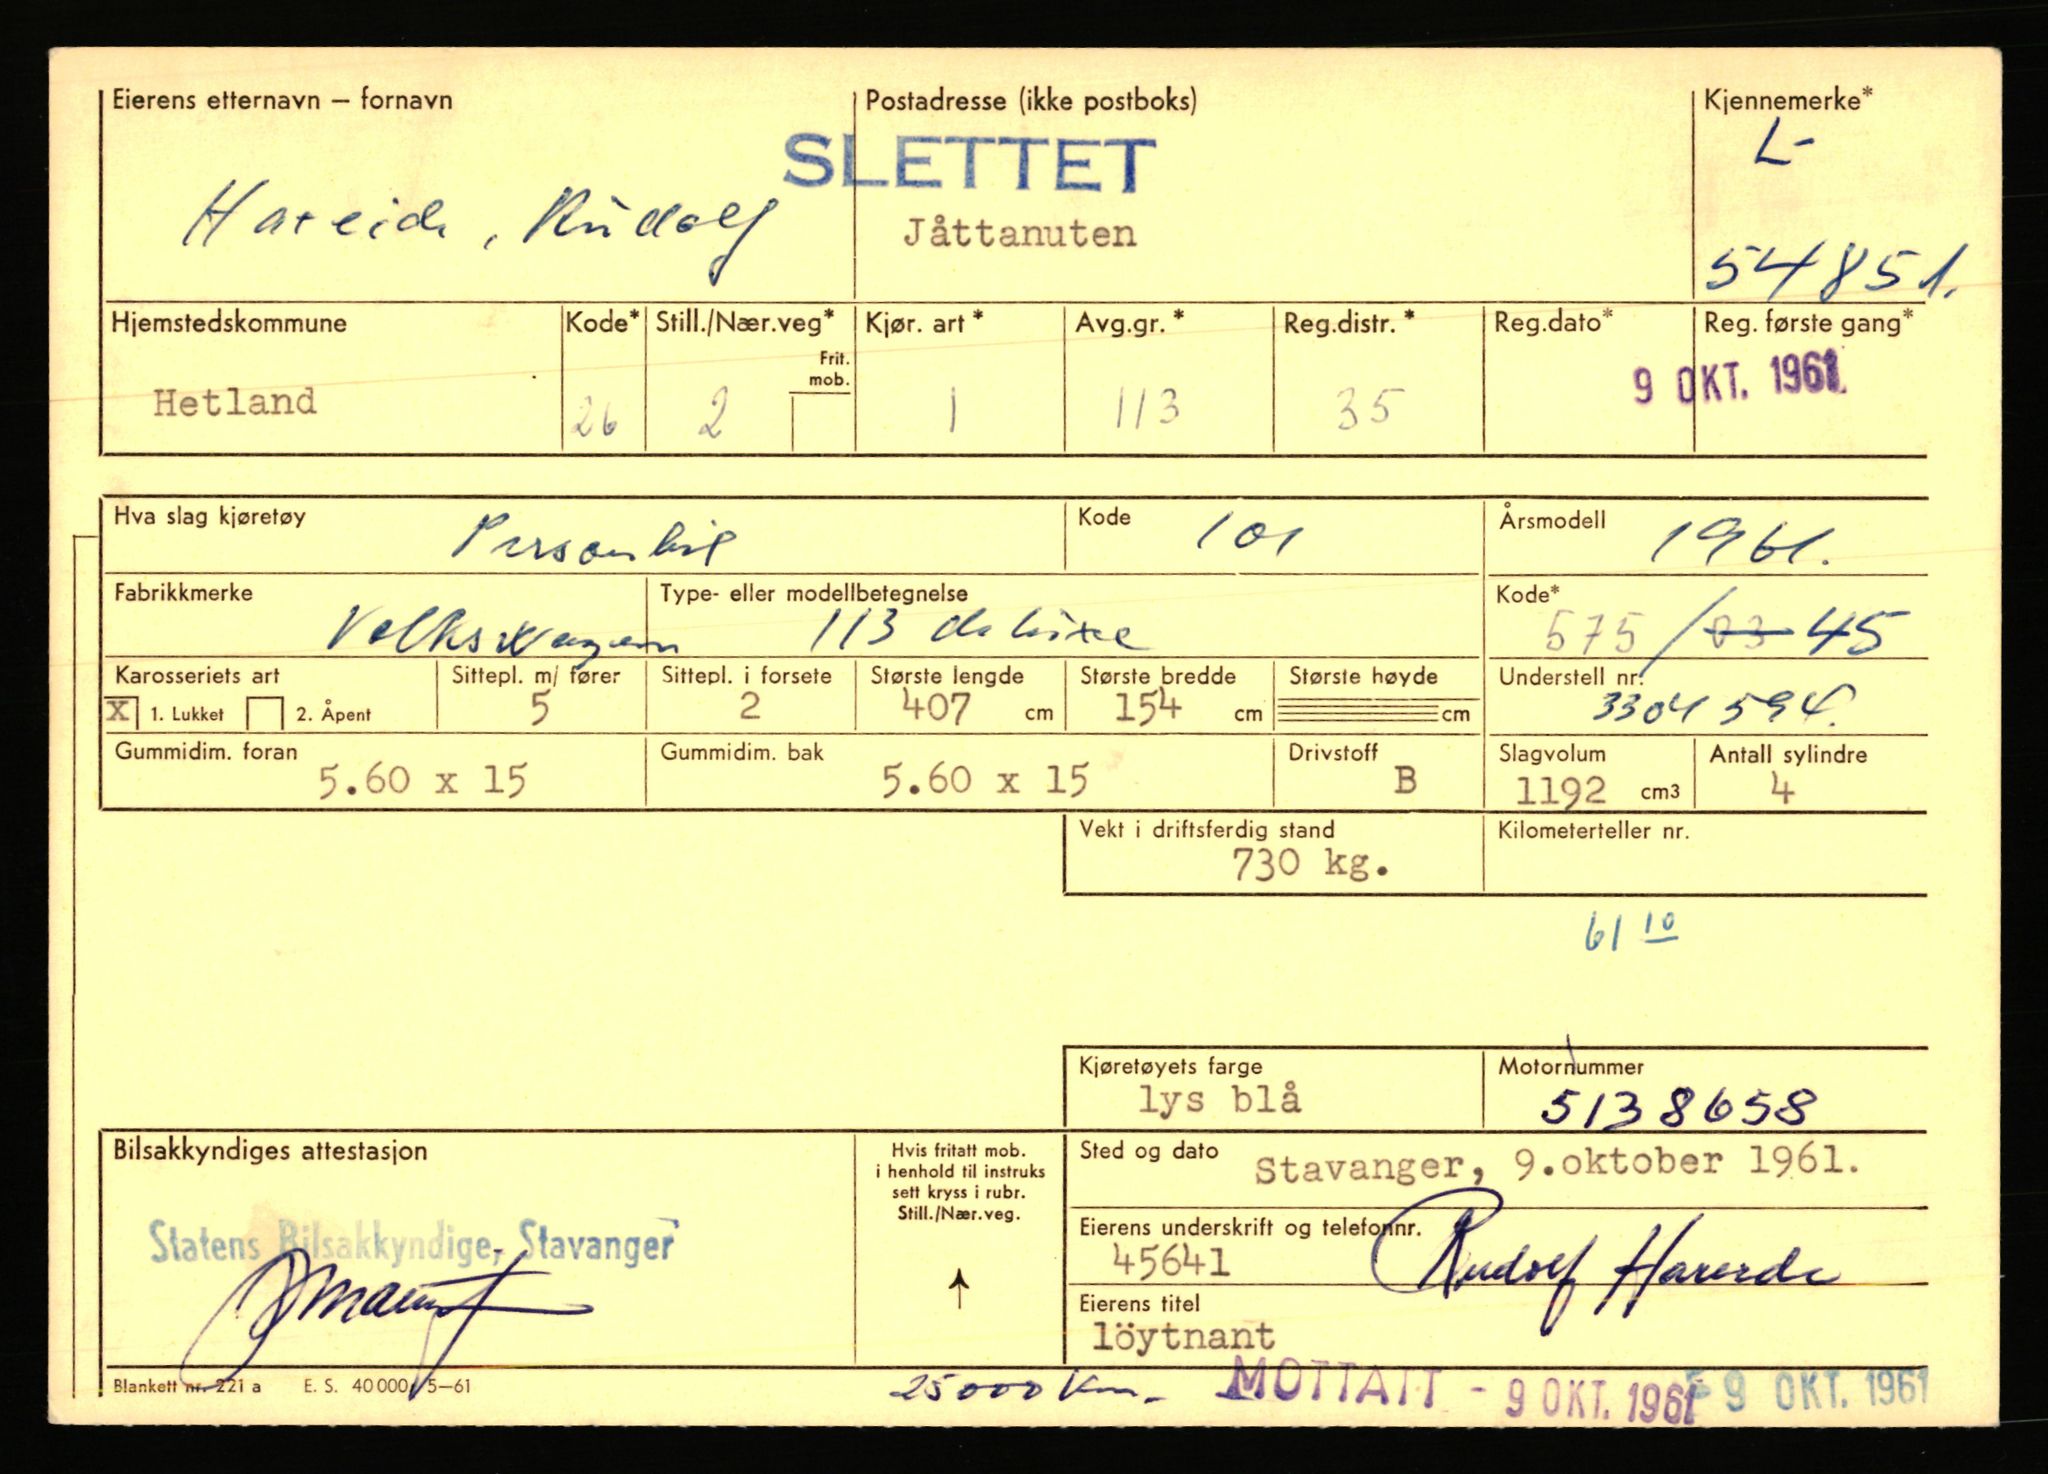 Eierens etternavn – fornavn
Postadresse (ikke postboks)
Kjennemerke*
SLETTET
L-
Hareide, Rudolf
Jåttanuten
54851.
Hjemstedskommune
Kode*
Still./Nær.veg*
Frit. mob.
Kjør. art *
Avg.gr. *
Reg.distr. *
Reg.dato*
Reg. første gang*
Hetland
26
2
1
113
35
9 OKT. 1961
Hva slag kjøretøy
Personbil
Kode
101
Årsmodell
1961.
Fabrikkmerke
Volkswagen
Type- eller modellbetegnelse
113 de luxe
Kode*
575 / 03 45
Karosseriets art
X 1. Lukket
2. Åpent
Sittepl. m/ fører
5
Sittepl. i forsete
2
Største lengde
407 cm
Største bredde
154 cm
Største høyde
cm
Understell nr.
3304 594.
Gummidim. foran
5.60 x 15
Gummidim. bak
5.60 x 15
Drivstoff
B
Slagvolum
1192 cm3
Antall sylindre
4
Vekt i driftsferdig stand
730 kg.
Kilometerteller nr.
61 10
Kjøretøyets farge
lys blå
Motornummer
5138658
Bilsakkyndiges attestasjon
Statens Bilsakkyndige, Stavanger
Hvis fritatt mob.
i henhold til instruks
sett kryss i rubr.
Still./Nær.veg.
Sted og dato
Stavanger, 9.oktober 1961.
Eierens underskrift og telefonnr.
45641
Rudolf Hareide
Eierens titel
löytnant
Blankett nr. 221 a E. S. 40 000 5–61
25000 km.
MOTTATT - 9 OKT. 1961
9 OKT. 1961